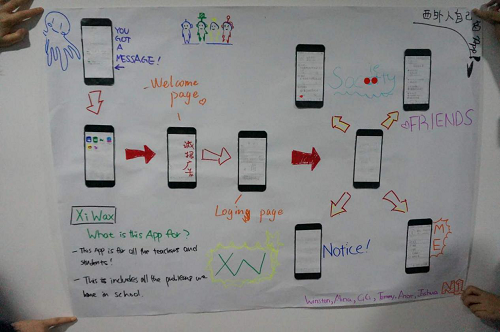 YOU
GOT
A
MESSAGE!
西外人自己
Welcome
page
Society
FRIENDS
Loging page
XiWax
What is this App for?
- This App is for all the teachers and
students!
- This is includes all the problems we
have in school.
XW
Notice!
ME
Winston, Mina, CiCi, Timmy,